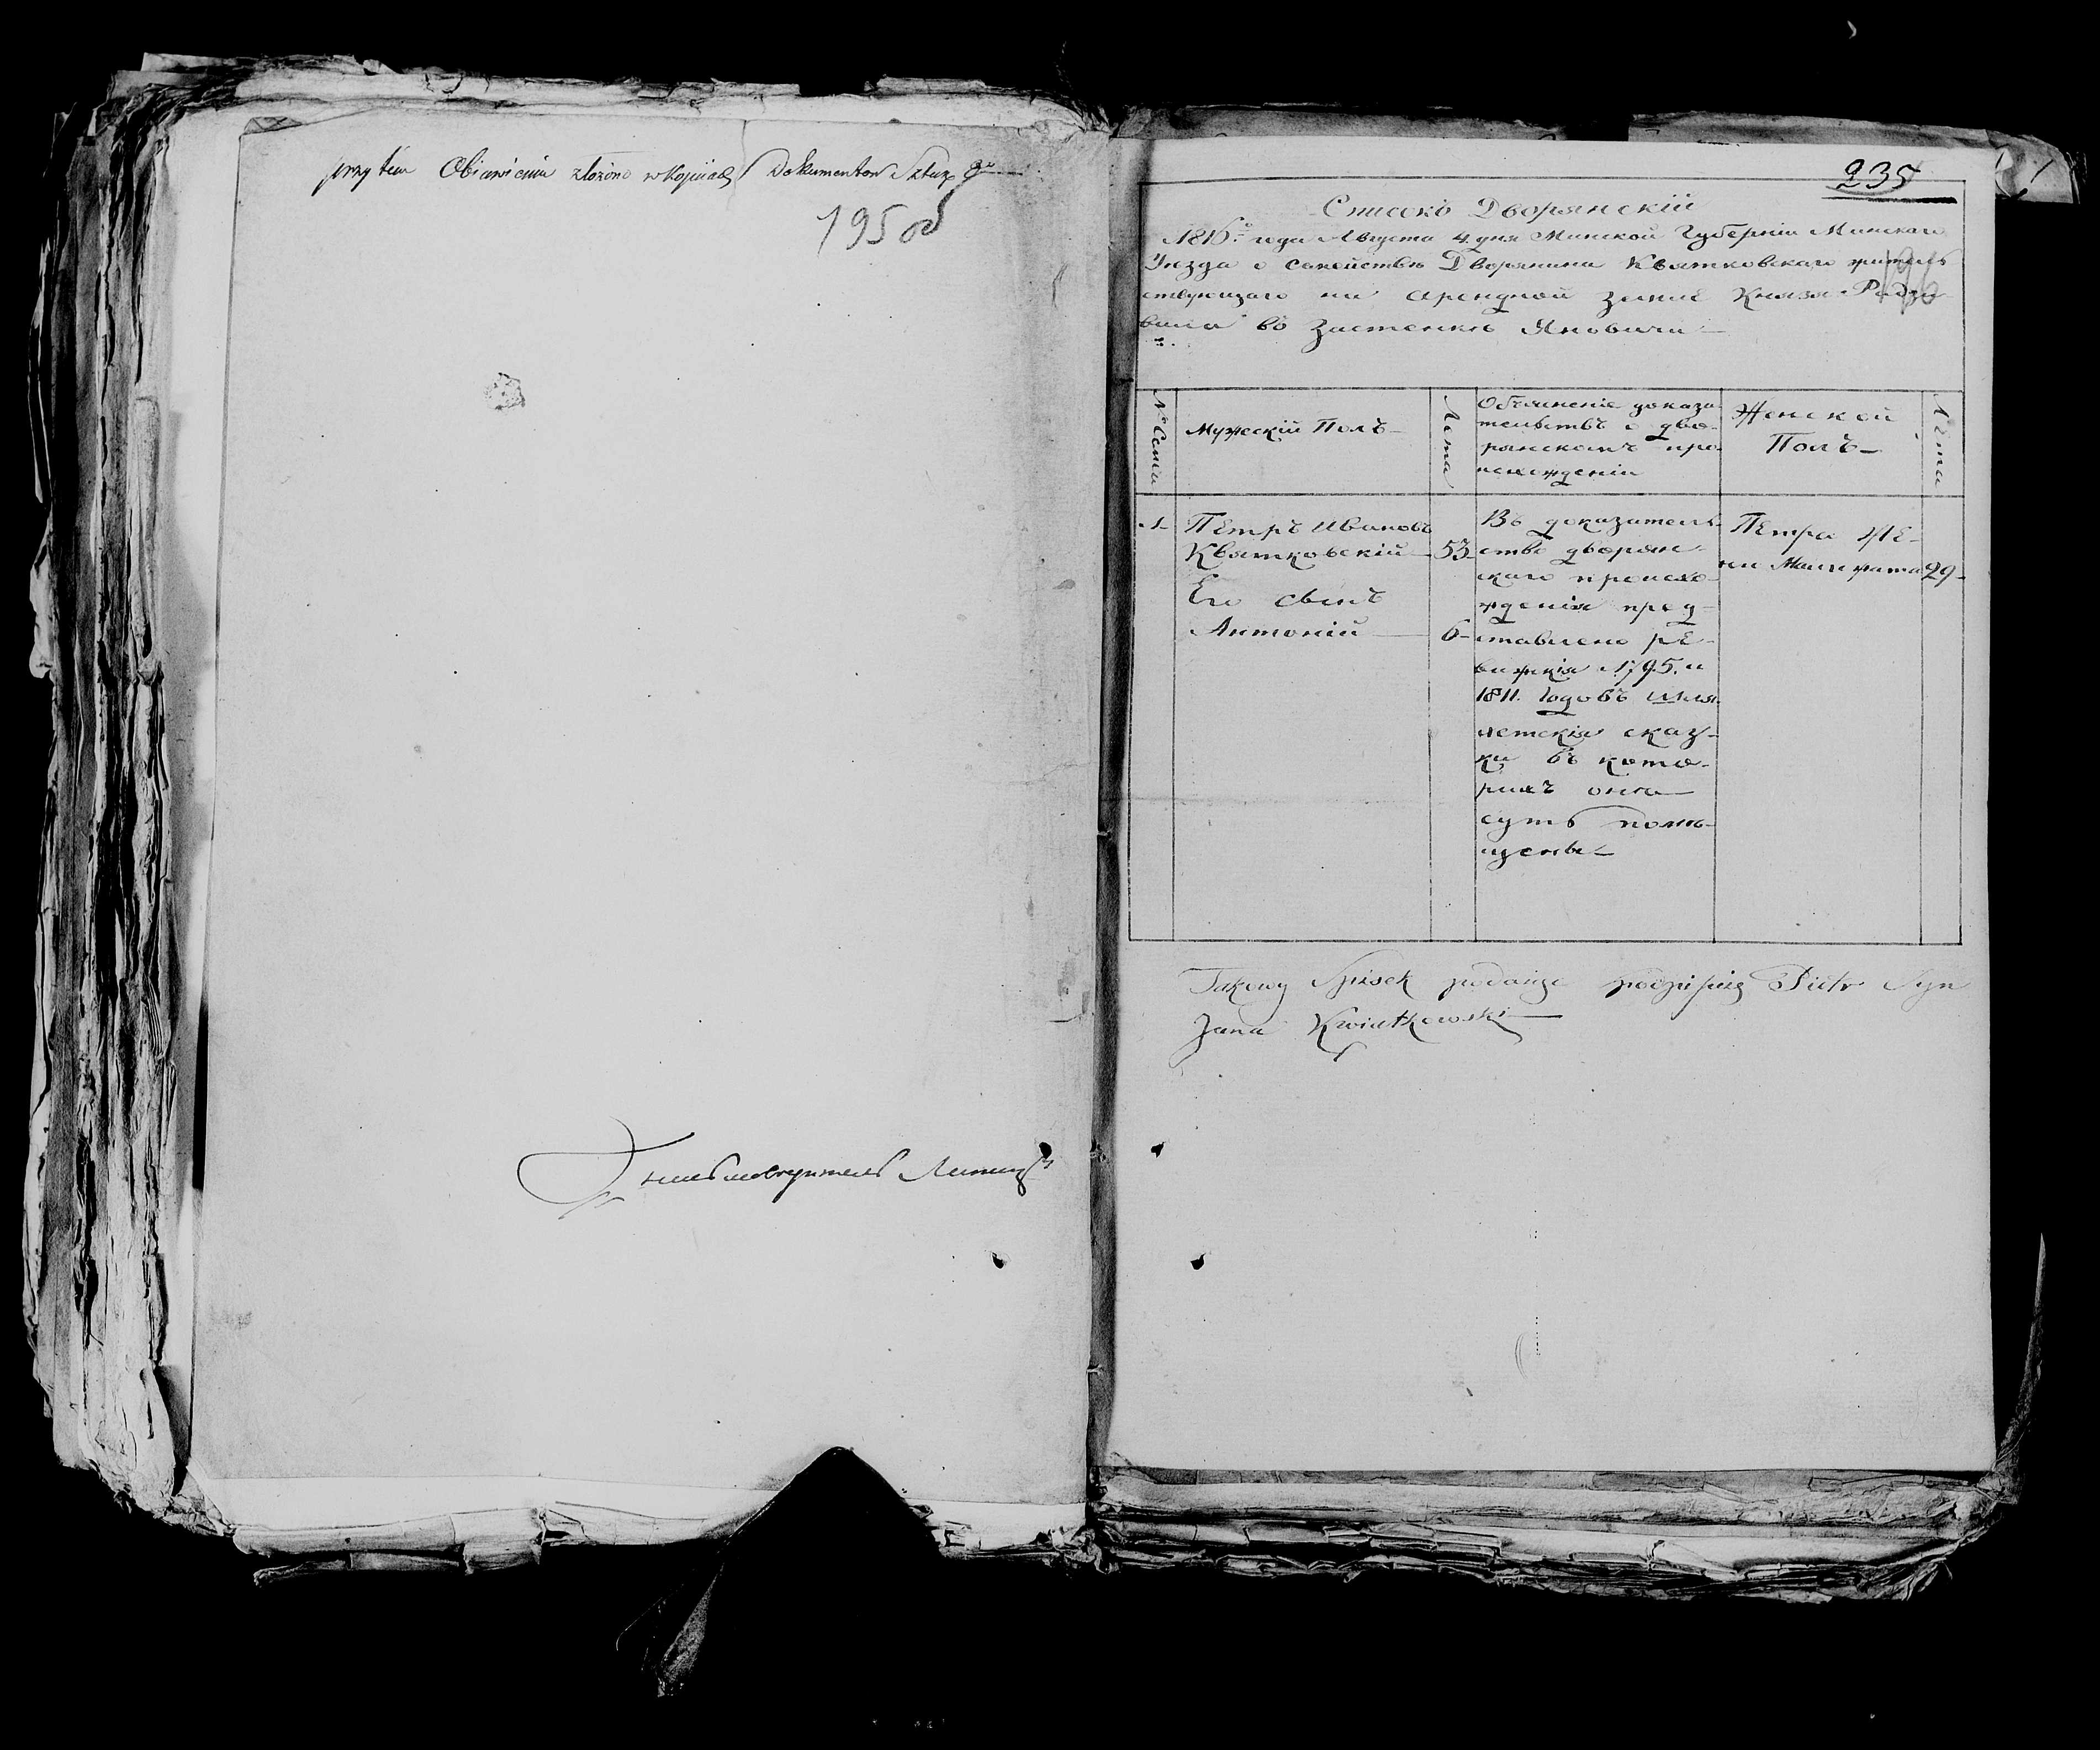 przytem Obiawieniu złożono w kopijach Dokumentow Sztuk
195 об
235
Списокъ Дворянскій
1816го года Августа 4 дня Минской Губерніи Минскаго
Уезда о Семействѣ Дворянина Квятковскаго житель
ствующаго на арендной землѣ Князя Радзи
вила во Застенкѣ Яновичи
№ Семьи
Мужескій Полъ
Лета
Объясненіе доказа
тельствъ о дво-
рянскомъ про
исхожденіи
Женской
Полъ
Лета
1
Петръ Ивановъ
Квятковскій
53
Его сынъ
Антоній
6
Въ доказатель-
ство дворян-
скаго происхо-
жденія пред-
ставлено ре-
вижкія 1795. и
1811. годовъ шля-
хетскія сказ-
ки въ кото-
рихъ они
суть помѣ-
щены
Петра же-
на Маргарита
29
Takowy Spisek podaige podpisuię Piotr Syn
Jana Kwiatkowski